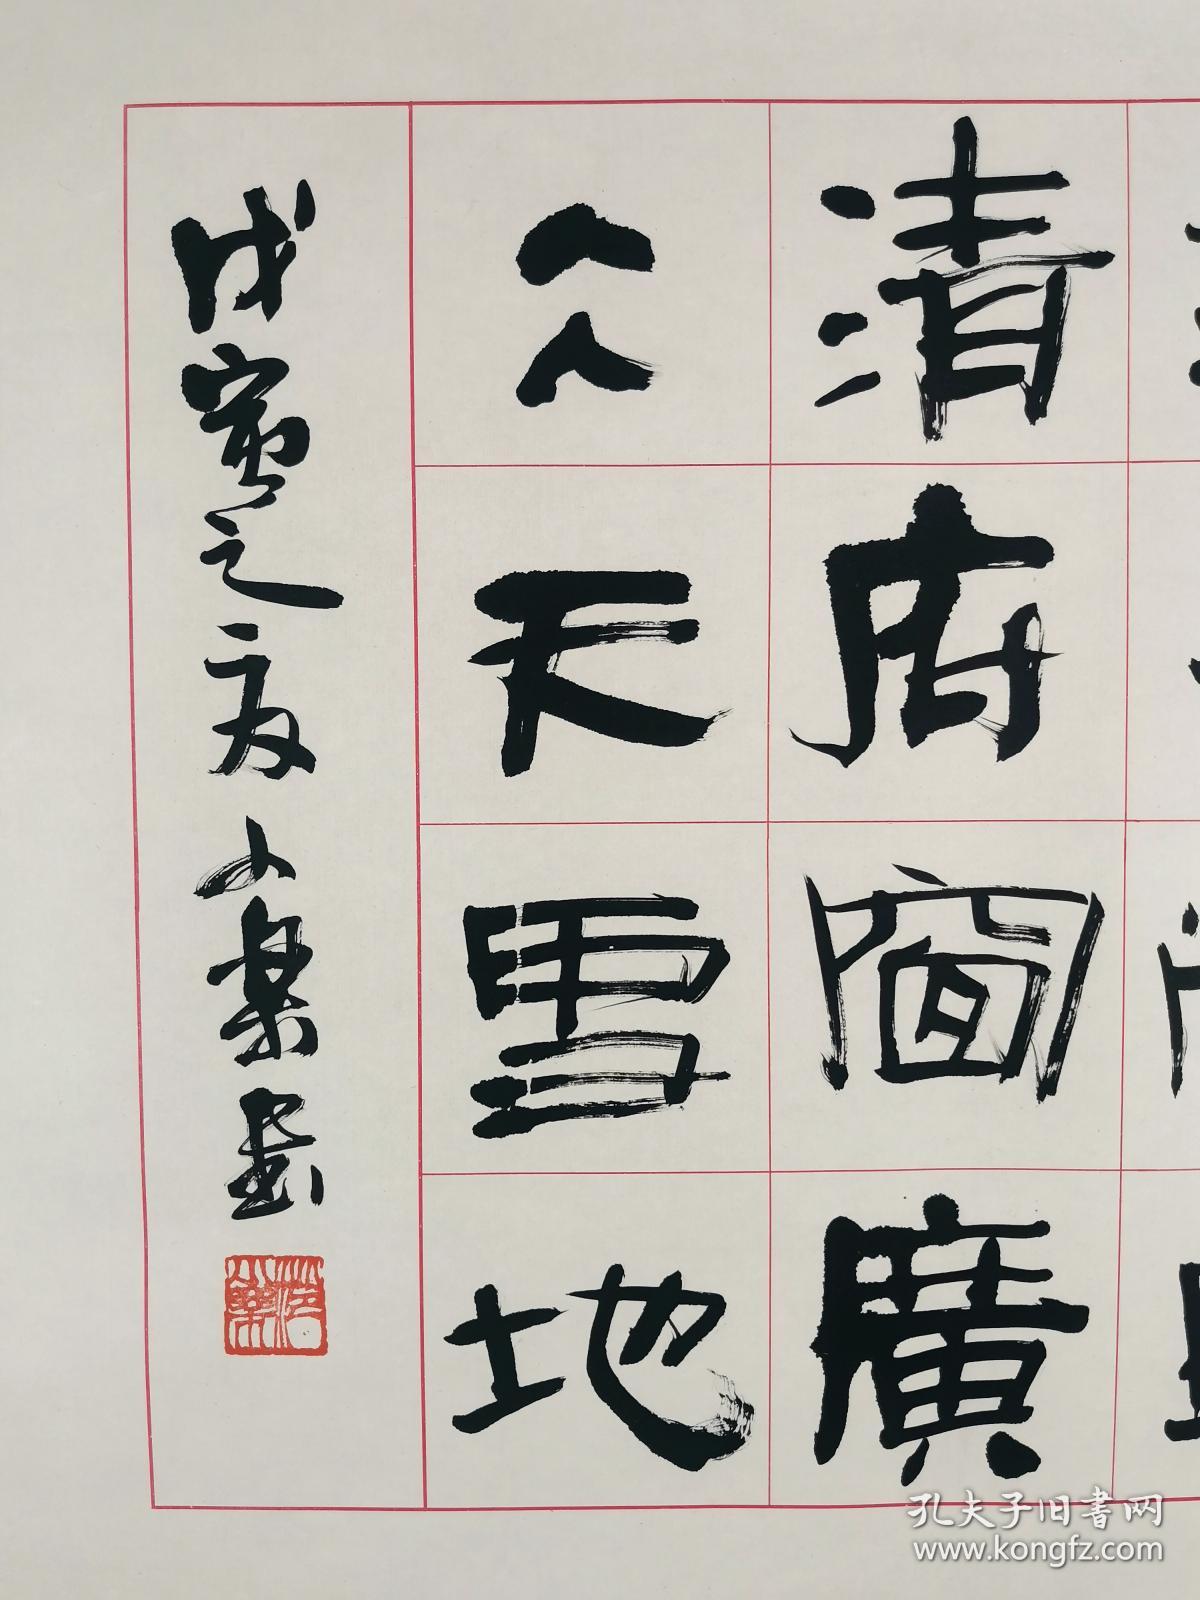 清府廣
仌天雪地
戊寅之夏小書
孔夫子旧書网
www.kongfz.com